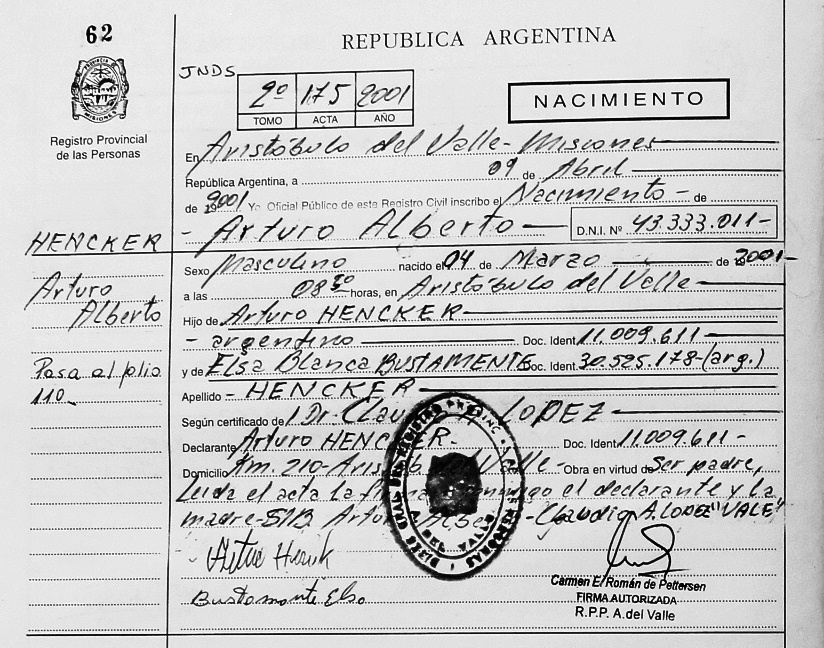 62
REPUBLICA ARGENTINA
PROVINCIA
MISIONES
Registro Provincial
de las Personas
JNDS
2º 175 2001
TOMO ACTA AÑO
NACIMIENTO
En Aristóbulo del Valle - Misiones
República Argentina, a 09 de Abril
de 2001 Yo Oficial Público de este Registro Civil inscribo el Nacimiento - de
- Arturo Alberto - D.N.I. Nº 43.333.011-
HENCKER
Arturo
Alberto
Pasa al folio
110-
Sexo Masculino nacido el 04 de Marzo de 2001-
a las 08 30 horas, en Aristóbulo del Valle -
Hijo de Arturo HENCKER
- argentino Doc. Ident 11.009.611-
y de Elsa Blanca BUSTAMENTE Doc. Ident. 30.525.178-(arg.)
Apellido - HENCKER
Según certificado de Dr. LOPEZ
Declarante Arturo HENCKER - Doc. Ident 11.009.611-
Domicilio Km. 210- Valle - Obra en virtud de Ser padre,
Leida el acta La el declarante y la
madre-S/B Claudio A. LOPEZ "VALE"
Bustamante Elsa
Carmen E. Román de Pettersen
FIRMA AUTORIZADA
R.P.P. A.del Valle